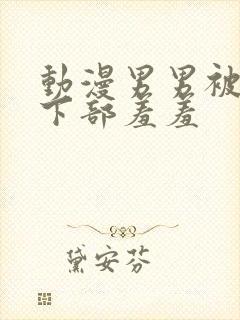 動漫男男被
下部羞羞
黛安芬